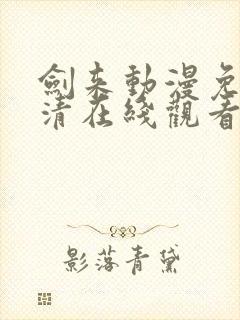 劍来動漫免
清在綫觀看
影落青黛